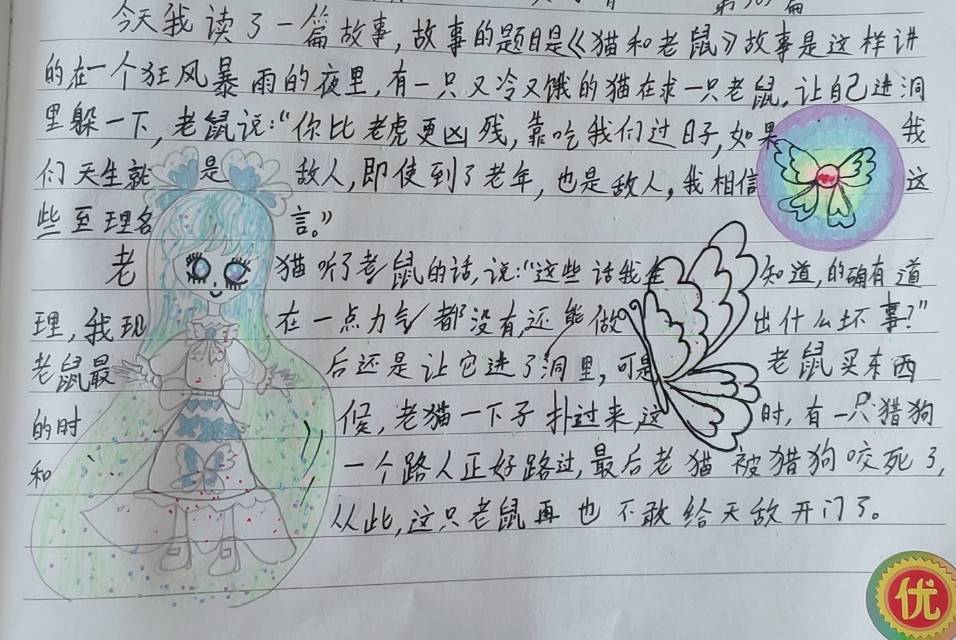 今天我读了一篇故事，故事的题目是《猫和老鼠》故事是这样讲
的，在一个狂风暴雨的夜里，有一只又冷又饿的猫在求一只老鼠，让自己进洞
里躲一下，老鼠说：“你比老虎更凶残，靠吃我们过日子，如果我
们天生就是敌人，即使到了老年，也是敌人，我相信这
些至理名言。”
老猫听了老鼠的话，说：“这些话我全知道，的确有道
理，我现在一点力气都没有，还能做出什么坏事？”
老鼠最后还是让它进了洞里，可是老鼠买东西
的时候，老猫一下子扑过来，这时，有一只猎狗
和一个路人正好路过，最后老猫被猎狗咬死了，
从此，这只老鼠再也不敢给天敌开门了。
优